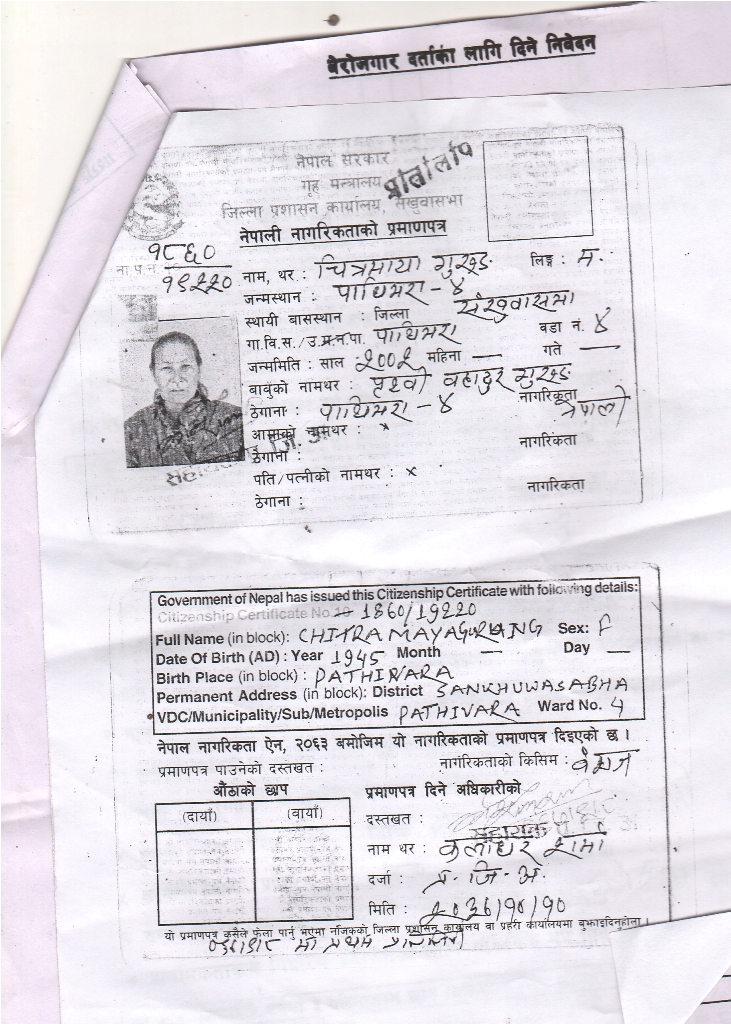 बेरोजगार दर्ताका लागि दिने निवेदन
नेपाल सरकार
गृह मन्त्रालय
प्रतिलिपि
जिल्ला प्रशासन कार्यालय, संखुवासभा
नेपाली नागरिकताको प्रमाणपत्र
ना.प्र.नं. १८६०/१९२२०
नाम, थर : चित्रमाया गुरुङ लिङ्ग : म.
जन्मस्थान : पाथिभरा - ४
स्थायी बासस्थान : जिल्ला संखुवासभा
गा.वि.स./उ.म.न.पा. पाथिभरा वडा नं. ४
जन्ममिति : साल २००२ महिना — गते —
बाबुको नामथर : पृथ्वी बहादुर गुरुङ
ठेगाना : पाथिभरा - ४ नागरिकता नेपाली
आमाको नामथर : x
ठेगाना : नागरिकता
पति/पत्नीको नामथर : x
ठेगाना : नागरिकता
Government of Nepal has issued this Citizenship Certificate with following details:
Citizenship Certificate No. 1860/19220
Full Name (in block): CHITRA MAYA GURUNG Sex: F
Date Of Birth (AD) : Year 1945 Month — Day —
Birth Place (in block) : PATHIVARA
Permanent Address (in block): District SANKHUWASABHA
VDC/Municipality/Sub/Metropolis PATHIVARA Ward No. 4
नेपाल नागरिकता ऐन, २०६३ बमोजिम यो नागरिकताको प्रमाणपत्र दिइएको छ ।
प्रमाणपत्र पाउनेको दस्तखत : नागरिकताको किसिम : वंशज
औंठाको छाप
(दायाँ) (बायाँ)
प्रमाणपत्र दिने अधिकारीको
दस्तखत :
नाम थर : कलाधर शर्मा
दर्जा : प्र. जि. अ.
मिति : २०३६/१०/१०
यो प्रमाणपत्र कसैले फेला पार्नु भएमा नजिकको जिल्ला प्रशासन कार्यालय वा प्रहरी कार्यालयमा बुझाइदिनुहोला ।
मा प्रथम प्रतिलिपि